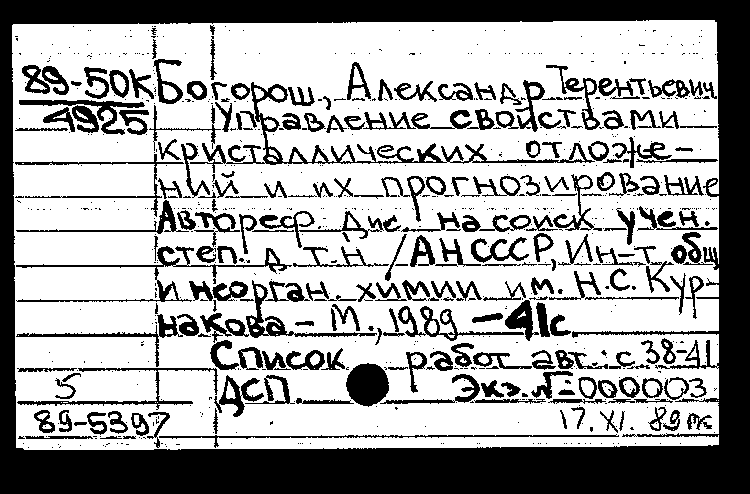 89-50К Богорош, Александр Терентьевич
4925 Управление свойствами
кристаллических отложе-
ний и их прогнозирование
Автореф. Дис. на соиск учен.
степ. д. т. н. /АН СССР, Ин-т общ
и неорган. химии им. Н.С. Кур-
накова. – М., 1989 – 41с.
Список работ авт.: с 38-41
5 ДСП. Экз. № 000003
89-5397 17. XI. 89